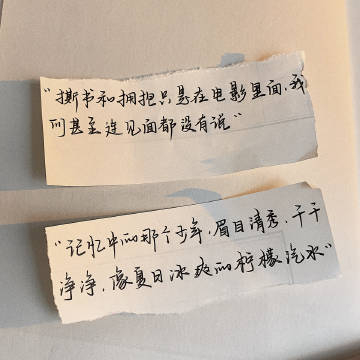 “撕书和拥抱只是在电影里面,我
们甚至连见面都没有说”
“记忆中的那个少年,眉目清秀,干干
净净,像夏日冰爽的柠檬汽水”